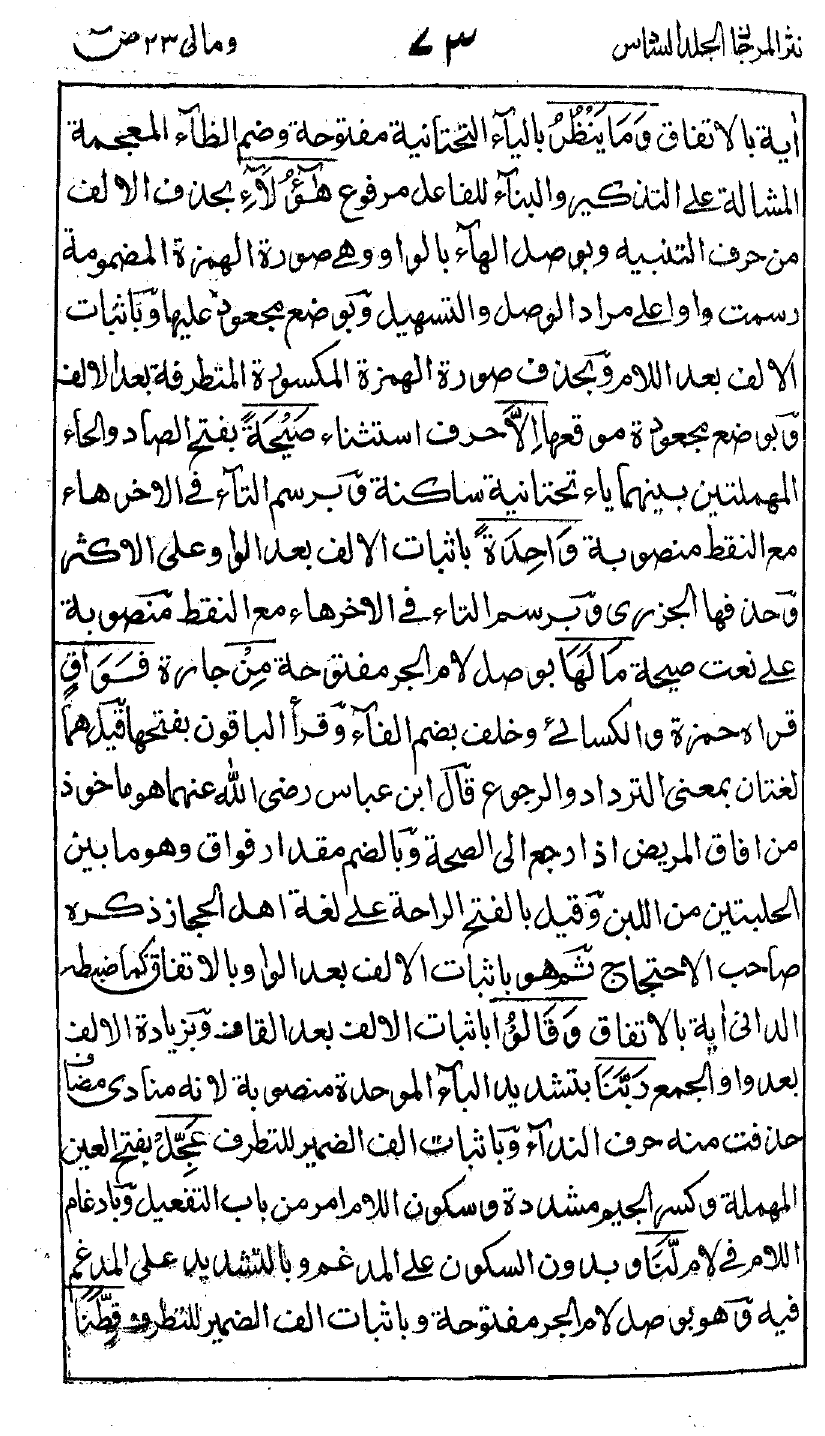 نثر المرجان الجلد السادس ٧٣ ومالى ٢٣ ص
اٰية بالاتفاق وَمَا يَنْظُرُ بالياء التحتانية مفتوحة وضم الظاء المعجمة
المشالة على التذكير والبناء للفاعل مرفوع هٰٓؤُلَآءِ بحذف الالف
من حرف التنبيه وبوصل الهاء بالواو وهى صورة الهمزة المضمومة
رسمت واوا على مراد الوصل والتسهيل وبوضع مجعودة عليها وباثبات
الالف بعد اللام وبحذف صورة الهمزة المكسورة المتطرفة بعد الالف
وبوضع مجعودة موقعها اِلَّا حرف استثناء صَيْحَةً بفتح الصاد والحاء
المهملتين بينهما ياء تحتانية ساكنة وبرسم التاء فى الاخر هاء
مع النقط منصوبة وَاحِدَةً باثبات الالف بعد الواو على الاكثر
وحذفها الجزرى وبرسم التاء فى الاخر هاء مع النقط منصوبة
على نعت صيحة مَا لَهَا بوصل لام الجر مفتوحة مِنْ جارة فَوَاقٍ
قراه حمزة والكسائى وخلف بضم الفاء وقرأ الباقون بفتحها قيل هما
لغتان بمعنى الترداد والرجوع قال ابن عباس رضى الله عنهما هو ماخوذ
من افاق المريض اذا رجع الى الصحة وبالضم مقدار فواق وهو ما بين
الحلبتين من اللبن وقيل بالفتح الراحة على لغة اهل الحجاز ذكره
صاحب الاحتجاج ثم هو باثبات الالف بعد الواو بالاتفاق كما ضبطه
الدانى اٰية بالاتفاق وَقَالُوْا باثبات الالف بعد القاف وبزيادة الالف
بعد واو الجمع رَبَّنَا بتشديد الباء الموحدة منصوبة لانه منادى مضاف
حذفت منه حرف النداء وباثبات الف الضمير للتطرف عَجِّلْ بفتح العين
المهملة وكسر الجيم مشددة وسكون اللام امر من باب التفعيل وبادغام
اللام فى لام لَّنَا وبدون السكون على المدغم وبالتشديد على المدغم
فيه وهو بوصل لام الجر مفتوحة وباثبات الف الضمير للتطرف قِطَّنَا